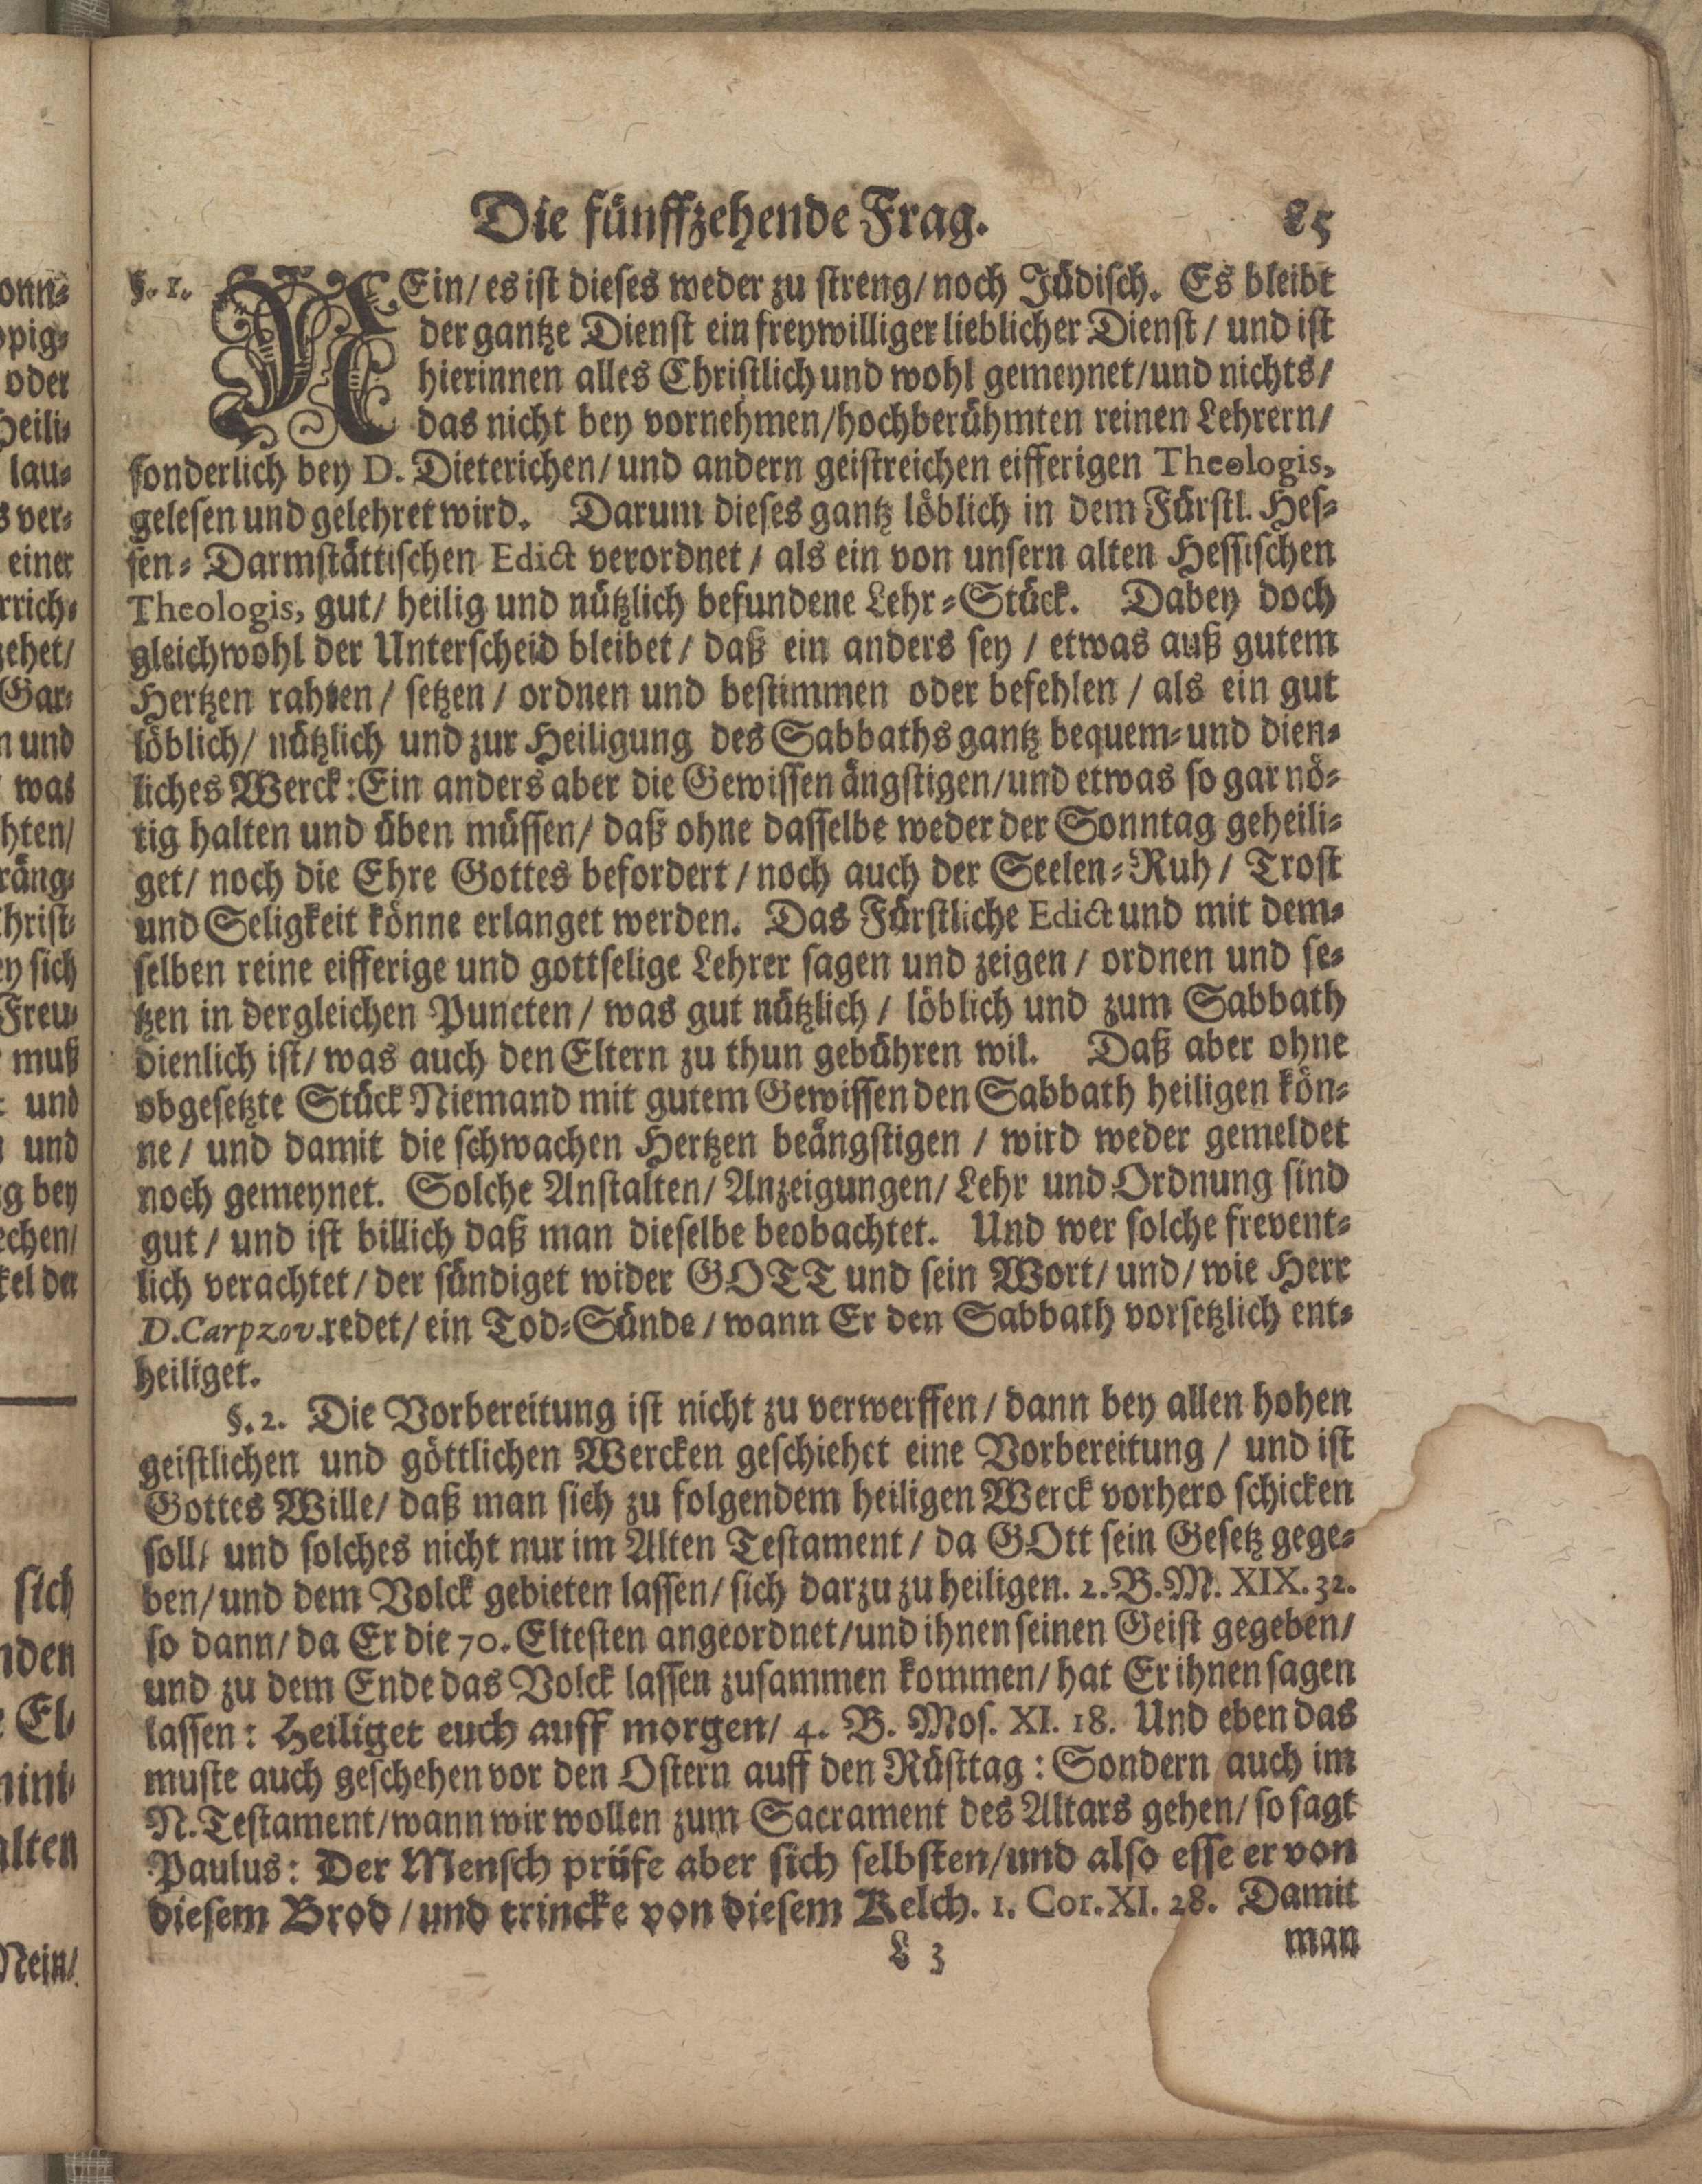 Die fünffzehende Frag. 85
§. 1. NEin/ es ist dieses weder zu streng/ noch Jüdisch. Es bleibt
der gantze Dienst ein freywilliger lieblicher Dienst / und ist
hierinnen alles Christlich und wohl gemeynet/ und nichts/
das nicht bey vornehmen/ hochberühmten reinen Lehrern/
sonderlich bey D. Dieterichen/ und andern geistreichen eifferigen Theologis,
gelesen und gelehret wird. Darum dieses gantz löblich in dem Fürstl. Hes-
sen- Darmstättischen Edict verordnet / als ein von unsern alten Hessischen
Theologis, gut/ heilig und nützlich befundene Lehr-Stück. Dabey doch
gleichwohl der Unterscheid bleibet / daß ein anders sey / etwas auß gutem
Hertzen rahten / setzen / ordnen und bestimmen oder befehlen / als ein gut
löblich/ nützlich und zur Heiligung des Sabbaths gantz bequem- und dien-
liches Werck: Ein anders aber die Gewissen ängstigen/ und etwas so gar nö-
tig halten und üben müssen/ daß ohne dasselbe weder der Sonntag geheili-
get/ noch die Ehre Gottes befordert / noch auch der Seelen-Ruh / Trost
und Seligkeit könne erlanget werden. Das Fürstliche Edict und mit dem-
selben reine eifferige und gottselige Lehrer sagen und zeigen / ordnen und se-
tzen in dergleichen Puncten / was gut nützlich / löblich und zum Sabbath
dienlich ist/ was auch den Eltern zu thun gebühren wil. Daß aber ohne
obgesetzte Stück Niemand mit gutem Gewissen den Sabbath heiligen kön-
ne / und damit die schwachen Hertzen beängstigen / wird weder gemeldet
noch gemeynet. Solche Anstalten/ Anzeigungen/ Lehr und Ordnung sind
gut / und ist billich daß man dieselbe beobachtet. Und wer solche frevent-
lich verachtet / der sündiget wider GOTT und sein Wort/ und / wie Herr
D. Carpzov. redet/ ein Tod-Sünde / wann Er den Sabbath vorsetzlich ent-
heiliget.
§. 2. Die Vorbereitung ist nicht zu verwerffen / dann bey allen hohen
geistlichen und göttlichen Wercken geschiehet eine Vorbereitung / und ist
Gottes Wille/ daß man sich zu folgendem heiligen Werck vorhero schicken
soll/ und solches nicht nur im Alten Testament / da GOtt sein Gesetz gege-
ben/ und dem Volck gebieten lassen/ sich darzu zu heiligen. 2. B. M. XIX. 32.
so dann/ da Er die 70. Eltesten angeordnet/ und ihnen seinen Geist gegeben/
und zu dem Ende das Volck lassen zusammen kommen/ hat Er ihnen sagen
lassen: Heiliget euch auff morgen/ 4. B. Mos. XI. 18. Und eben das
muste auch geschehen vor den Ostern auff den Rüsttag: Sondern auch im
N. Testament/ wann wir wollen zum Sacrament des Altars gehen/ so sagt
Paulus: Der Mensch prüfe aber sich selbsten/ und also esse er von
diesem Brod / und trincke von diesem Kelch. 1. Cor. XI. 28. Damit
L 3 man